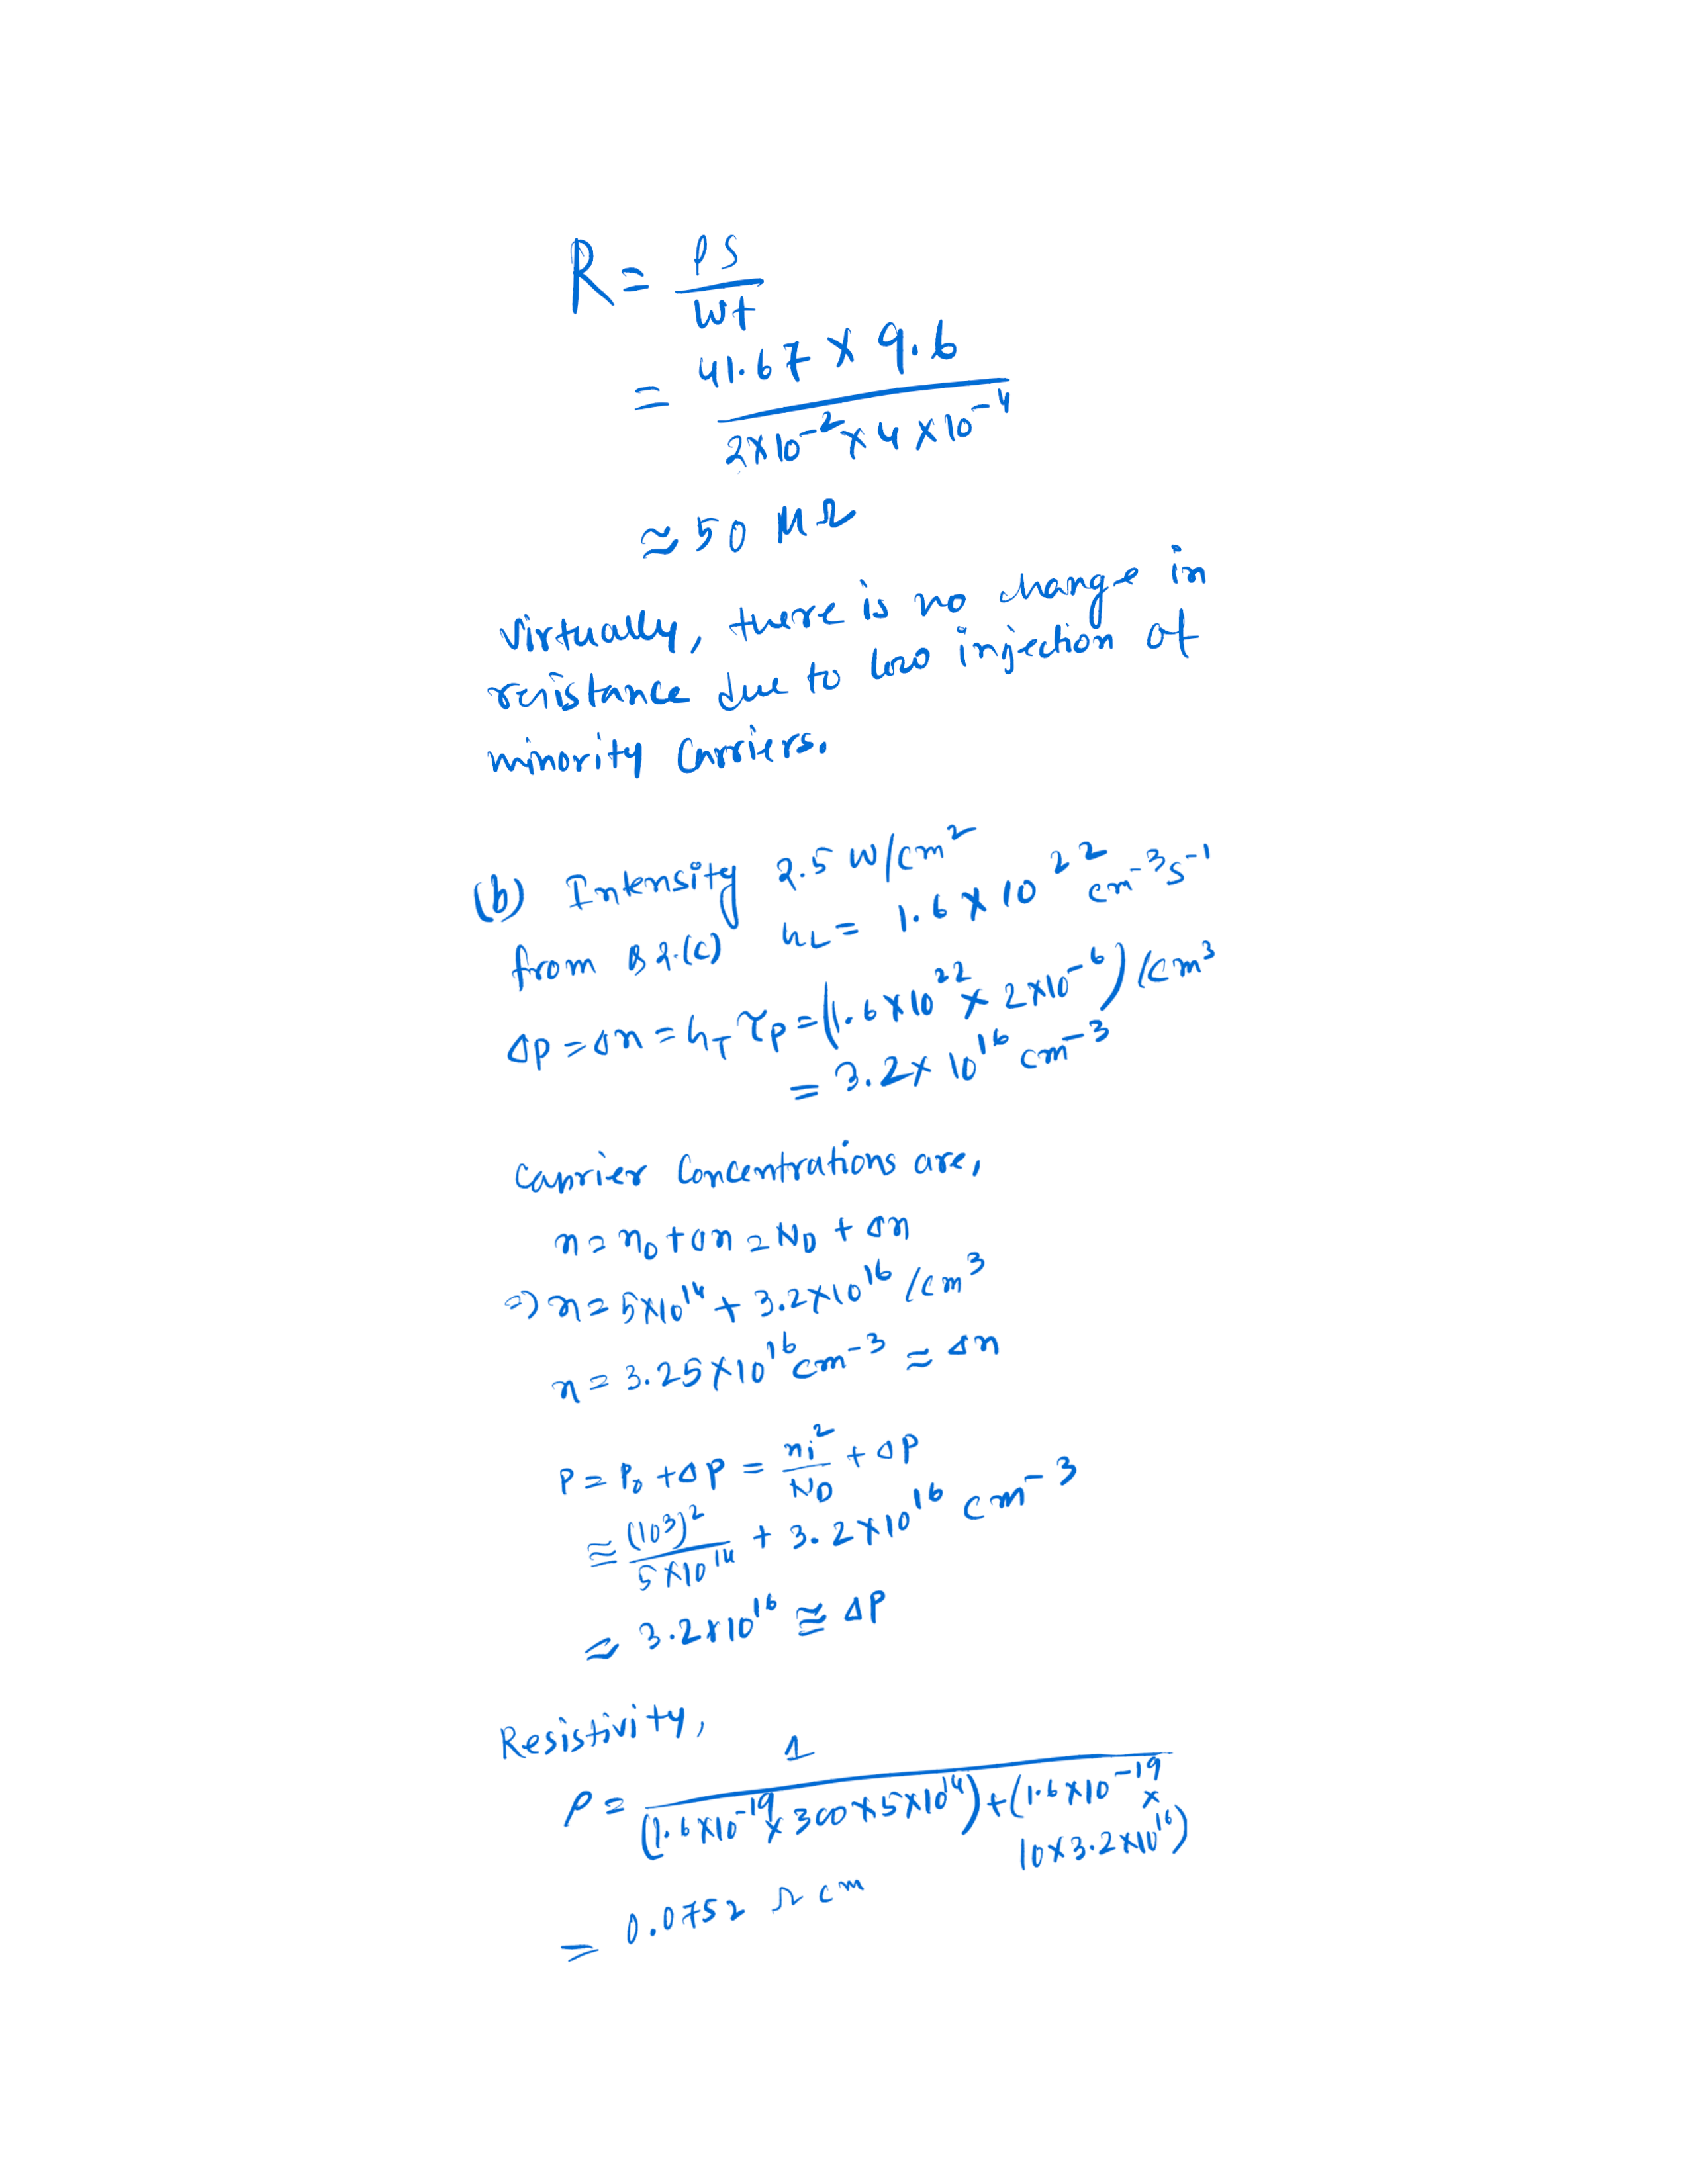 R = ρS / Wt
= 41.67 × 9.6 / 2×10⁻² × 4×10⁻⁴
≈ 50 MΩ
Virtually, there is no change in
resistance due to low injection of
minority carriers.
(b) Intensity 2.5 W/cm²
from Q2.(c) hL = 1.6 × 10²² cm⁻³s⁻¹
Δp = Δn = hT τp = (1.6×10²² × 2×10⁻⁶) /cm³
= 3.2 × 10¹⁶ cm⁻³
Carrier Concentrations are,
n = n₀ + Δn = ND + Δn
⇒ n = 5×10¹⁴ + 3.2×10¹⁶ /cm³
n = 3.25×10¹⁶ cm⁻³ ≈ Δn
P = P₀ + ΔP = ni² / ND + ΔP
≅ (10³)² / 5×10¹⁴ + 3.2×10¹⁶ cm⁻³
≈ 3.2×10¹⁶ ≅ ΔP
Resistivity,
ρ = 1 / (1.6×10⁻¹⁹ × 300 × 5×10¹⁴) + (1.6×10⁻¹⁹ ×
10×3.2×10¹⁶)
= 0.0752 Ω cm